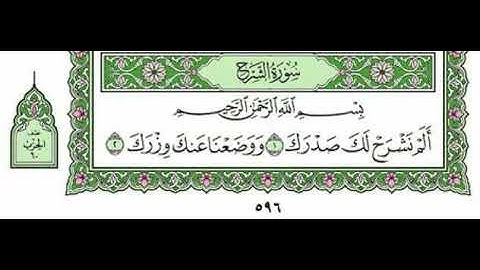 سُورَةُ الشَّرْحِ
بِسْمِ اللَّهِ الرَّحْمَٰنِ الرَّحِيمِ
أَلَمْ نَشْرَحْ لَكَ صَدْرَكَ ١ وَوَضَعْنَا عَنكَ وِزْرَكَ ٢
نصف
الحزب
٦٠
٥٩٦